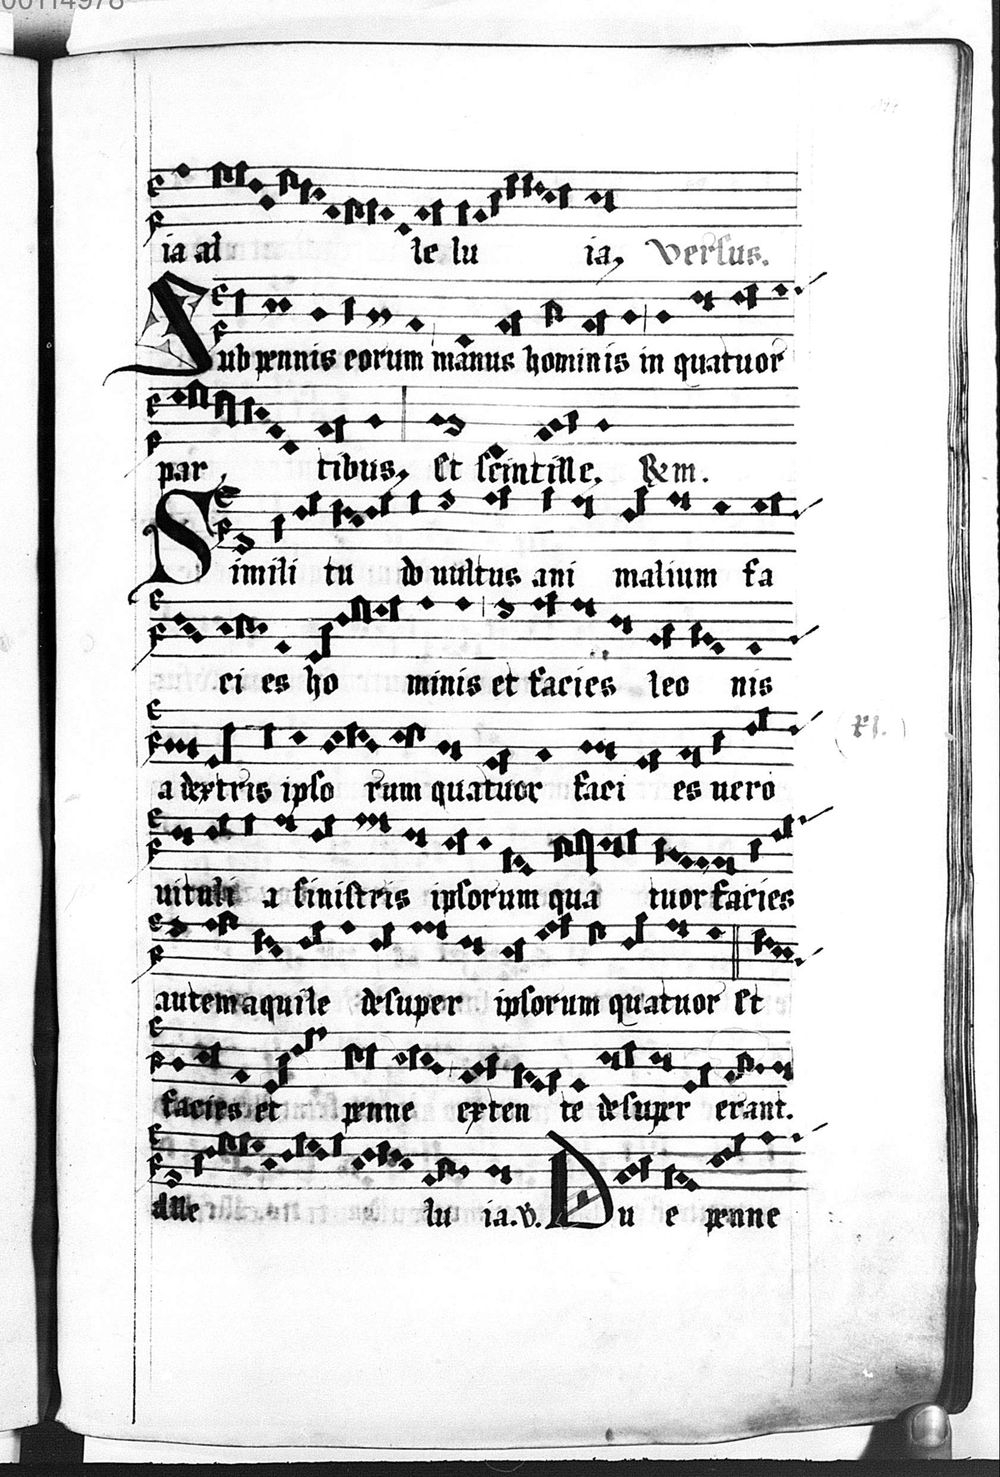 00114978
ia al le lu ia, Versus.
Sub pennis eorum manus hominis in quatuor
par tibus, Et scintille, Rem.
Simili tu do uultus ani malium fa
ci es ho minis et facies leo nis
a dextris ipso rum quatuor faci es uero
uituli a sinistris ipsorum qua tuor facies
autem aquile desuper ipsorum quatuor Et
facies et penne exten te desuper erant.
alle lu ia. V. Du e penne